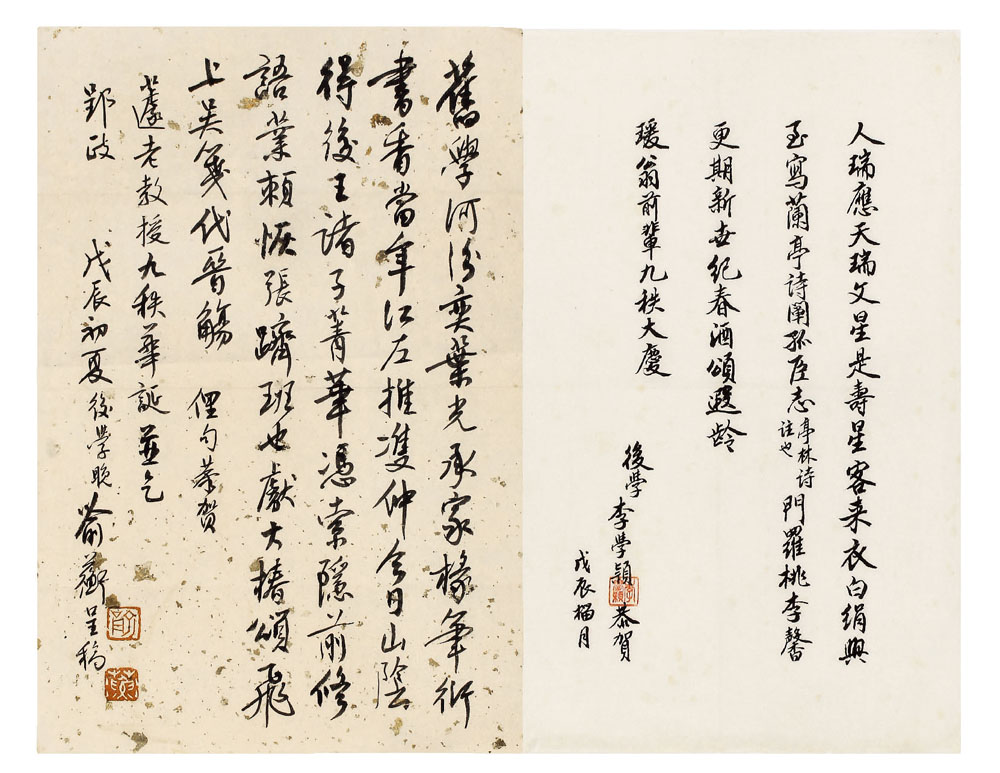 人瑞應天瑞文星是壽星客来衣白絹興
至寫蘭亭詩闡孤臣志亭林詩註也門羅桃李馨
更期新世紀春酒頌遐龄
瑗翁前輩九秩大慶
後學李學穎恭賀
戊辰榴月
舊學河汾奕葉光承家椽筆衍
書香當年江左推雙仲今日山陰
得後王諸子菁華憑索隱前修
語業賴恢張躋班也獻大椿頌飛
上吴箋代晉觴 俚句恭賀
蘧老教授九秩華誕並乞
郢政 戊辰初夏後學晚喻蘅呈稿